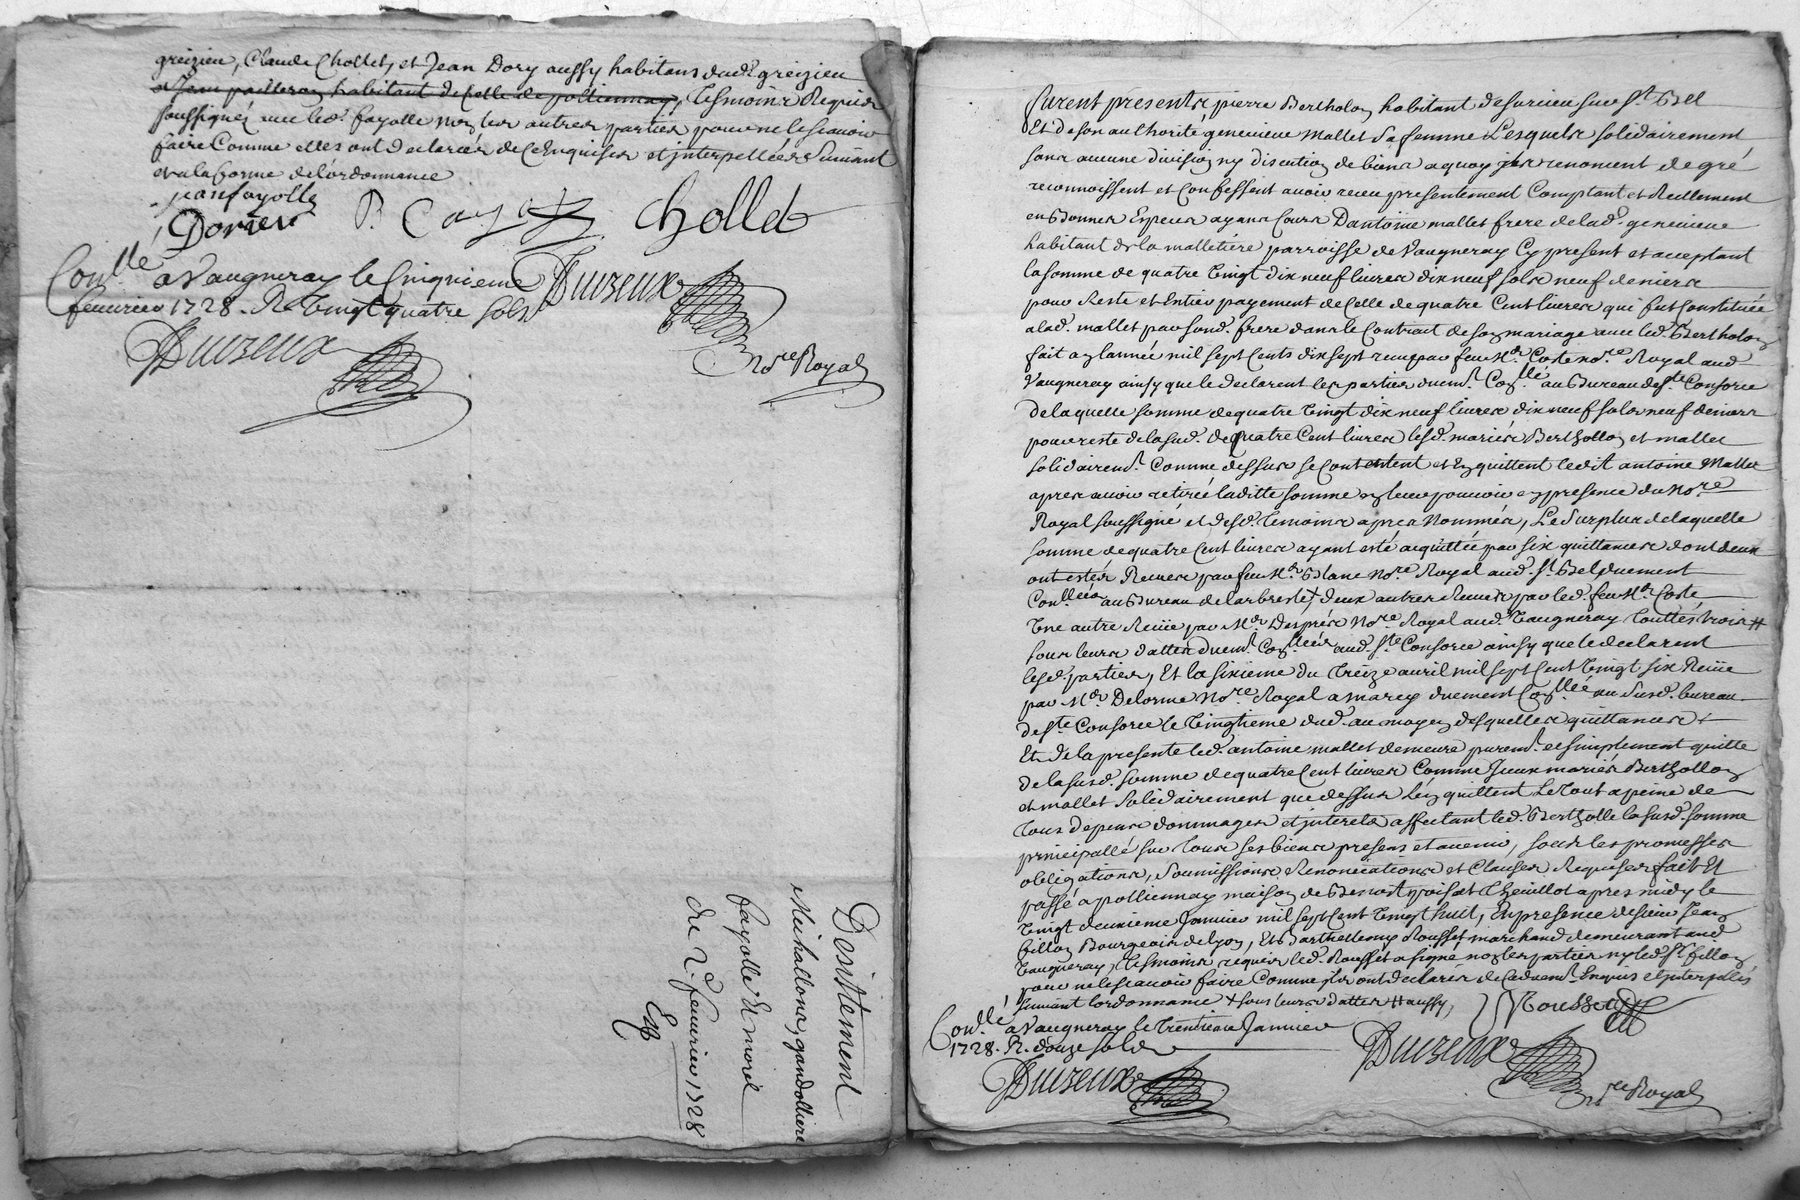 greizieu, Claude Chollet, et Jean Dory aussy habitans dud. greizieu
et Jean pailleron habitant de Celle de pollionnay, tesmoins Requis
soussignéz avec led. fayolle non les autres parties pour ne le scavoir
faire Comme elles ont declarées de ce Enquises et jnterpellées suivant
et a la forme de l'ordonnance
jean fayolle
Dorier P. Cayot Chollet
Conllé a Vaugneray le Cinquieme
feuvrier 1728. R. Vingt quatre sols
Duizeux
Duizeux
Nore Royal
Desistement
Michallons, gandolliere
fayolle Et morel
du 2e. feuvrier 1728
Exp
furent presents pierre Bertholon habitant de Surieu sur St. Bel
Et de son authorité genevieve mallet sa femme Lesquels solidairement
sans aucune division ny discution de biens a quoy jls renoncent de gré
reconnoissent et Confessent avoir receu presentement Comptant et Reellement
en bonnes Especes ayans Cours D'antoine mallet frere de lad. genevieve
habitant de la malletiere parroisse de Vaugneray Cy present et acceptant
la somme de quatre Vingt dix neuf livres dix neuf sols neuf deniers
pour Reste et Entier payement de Celle de quatre Cent livres qui fut Constituée
a lad. mallet par sond. frere dans le Contract de son mariage avec led. Bertholon
fait en l'année mil sept Cents dix sept receu par feu Me. Coste nore. Royal aud.
Vaugneray ainsy que le declarent les parties duem. Conllé au Bureau de Ste Consorce
de laquelle somme de quatre Vingt dix neuf livres dix neuf sols neuf deniers
pour reste de la sud. de quatre Cent livres lesd. mariés Berthollon et mallet
solidairem. Comme dessus se Contentent et En quittent ledit antoine Mallet
apres avoir retirée laditte somme en leur pouvoir en presence du Nore
Royal soussigné et desd. temoins apres Nommés, Le Surplus de laquelle
somme de quatre Cent livres ayant esté acquittée par six quittances dont deux
ont estés Receues par feu Me. Blanc Nore. Royal aud. St. Bel duement
Conllées au Bureau de Larbresle + deux autres Receues par led. feu Me. Coste
Une autre Receüe par Me. Després Nore. Royal aud. Vaugneray touttes trois #
sous leurs dattes duem. Conllées aud. Ste Consorce ainsy que le declarent
lesd. parties, Et la sixieme du treize avril mil sept Cent Vingt six Receüe
par Me. Delorme Nore. Royal a marcy duement Conllée au susd. bureau
de Ste Consorce le Vingtieme dud. au moyen desquelles quittances
Et de la presente led. antoine mallet demeure purem. et simplement quitte
de la susd. somme de quatre Cent livres Comme Jceux mariés Berthollon
et mallet solidairement que dessus L'en quittent Le tout a peine de
tous depens dommages et jnterets affectant led. Bertholle la susd. somme
principalle sur tous ses biens presens et avenir, sous les promesses
obligations, soumissions, Renonciations et Clauses Requises fait Et
passé a pollionnay maison de Benoit poisat Cheuillot apres midy le
Vingt deuxieme Janvier mil sept Cent Vingt huit, En presence de sieur Jean
fillon Bourgeois de Lyon, Et Barthellemy Rousset marchand demeurant aud.
Vaugneray, tesmoins requis led. Rousset a signé non les parties ny led. Sr. fillon
pour ne le scavoir faire Comme jls ont declarés de Ce duem. Enquis et jnterpellés
suivant l'ordonnance + sous leurs dattes # aussy,
Rousset
Conllé a Vaugneray le trentieme Janvier
1728. R. douze sols
Duizeux
Duizeux
Nore Royal